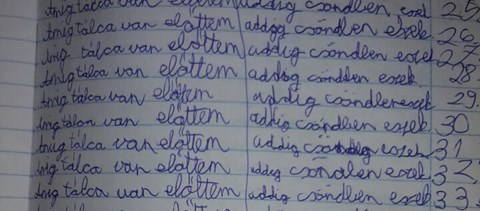 Amig tálca van előttem addig csöndben eszek. 25.
Amig tálca van előttem addig csöndben eszek. 26.
Amig tálca van előttem addig csöndben eszek 27.
Amig tálca van előttem addog csöndben eszek. 28
Amig tálca van előttem addig csöndben eszek 29.
Amig tálca van előttem addig csöndben eszek. 30
Amig tálca van előttem addig eszek. 31
Amig tálca van előttem addig csöndben eszek. 32.
Amig tálca van előttem addig csöndben eszek 33.